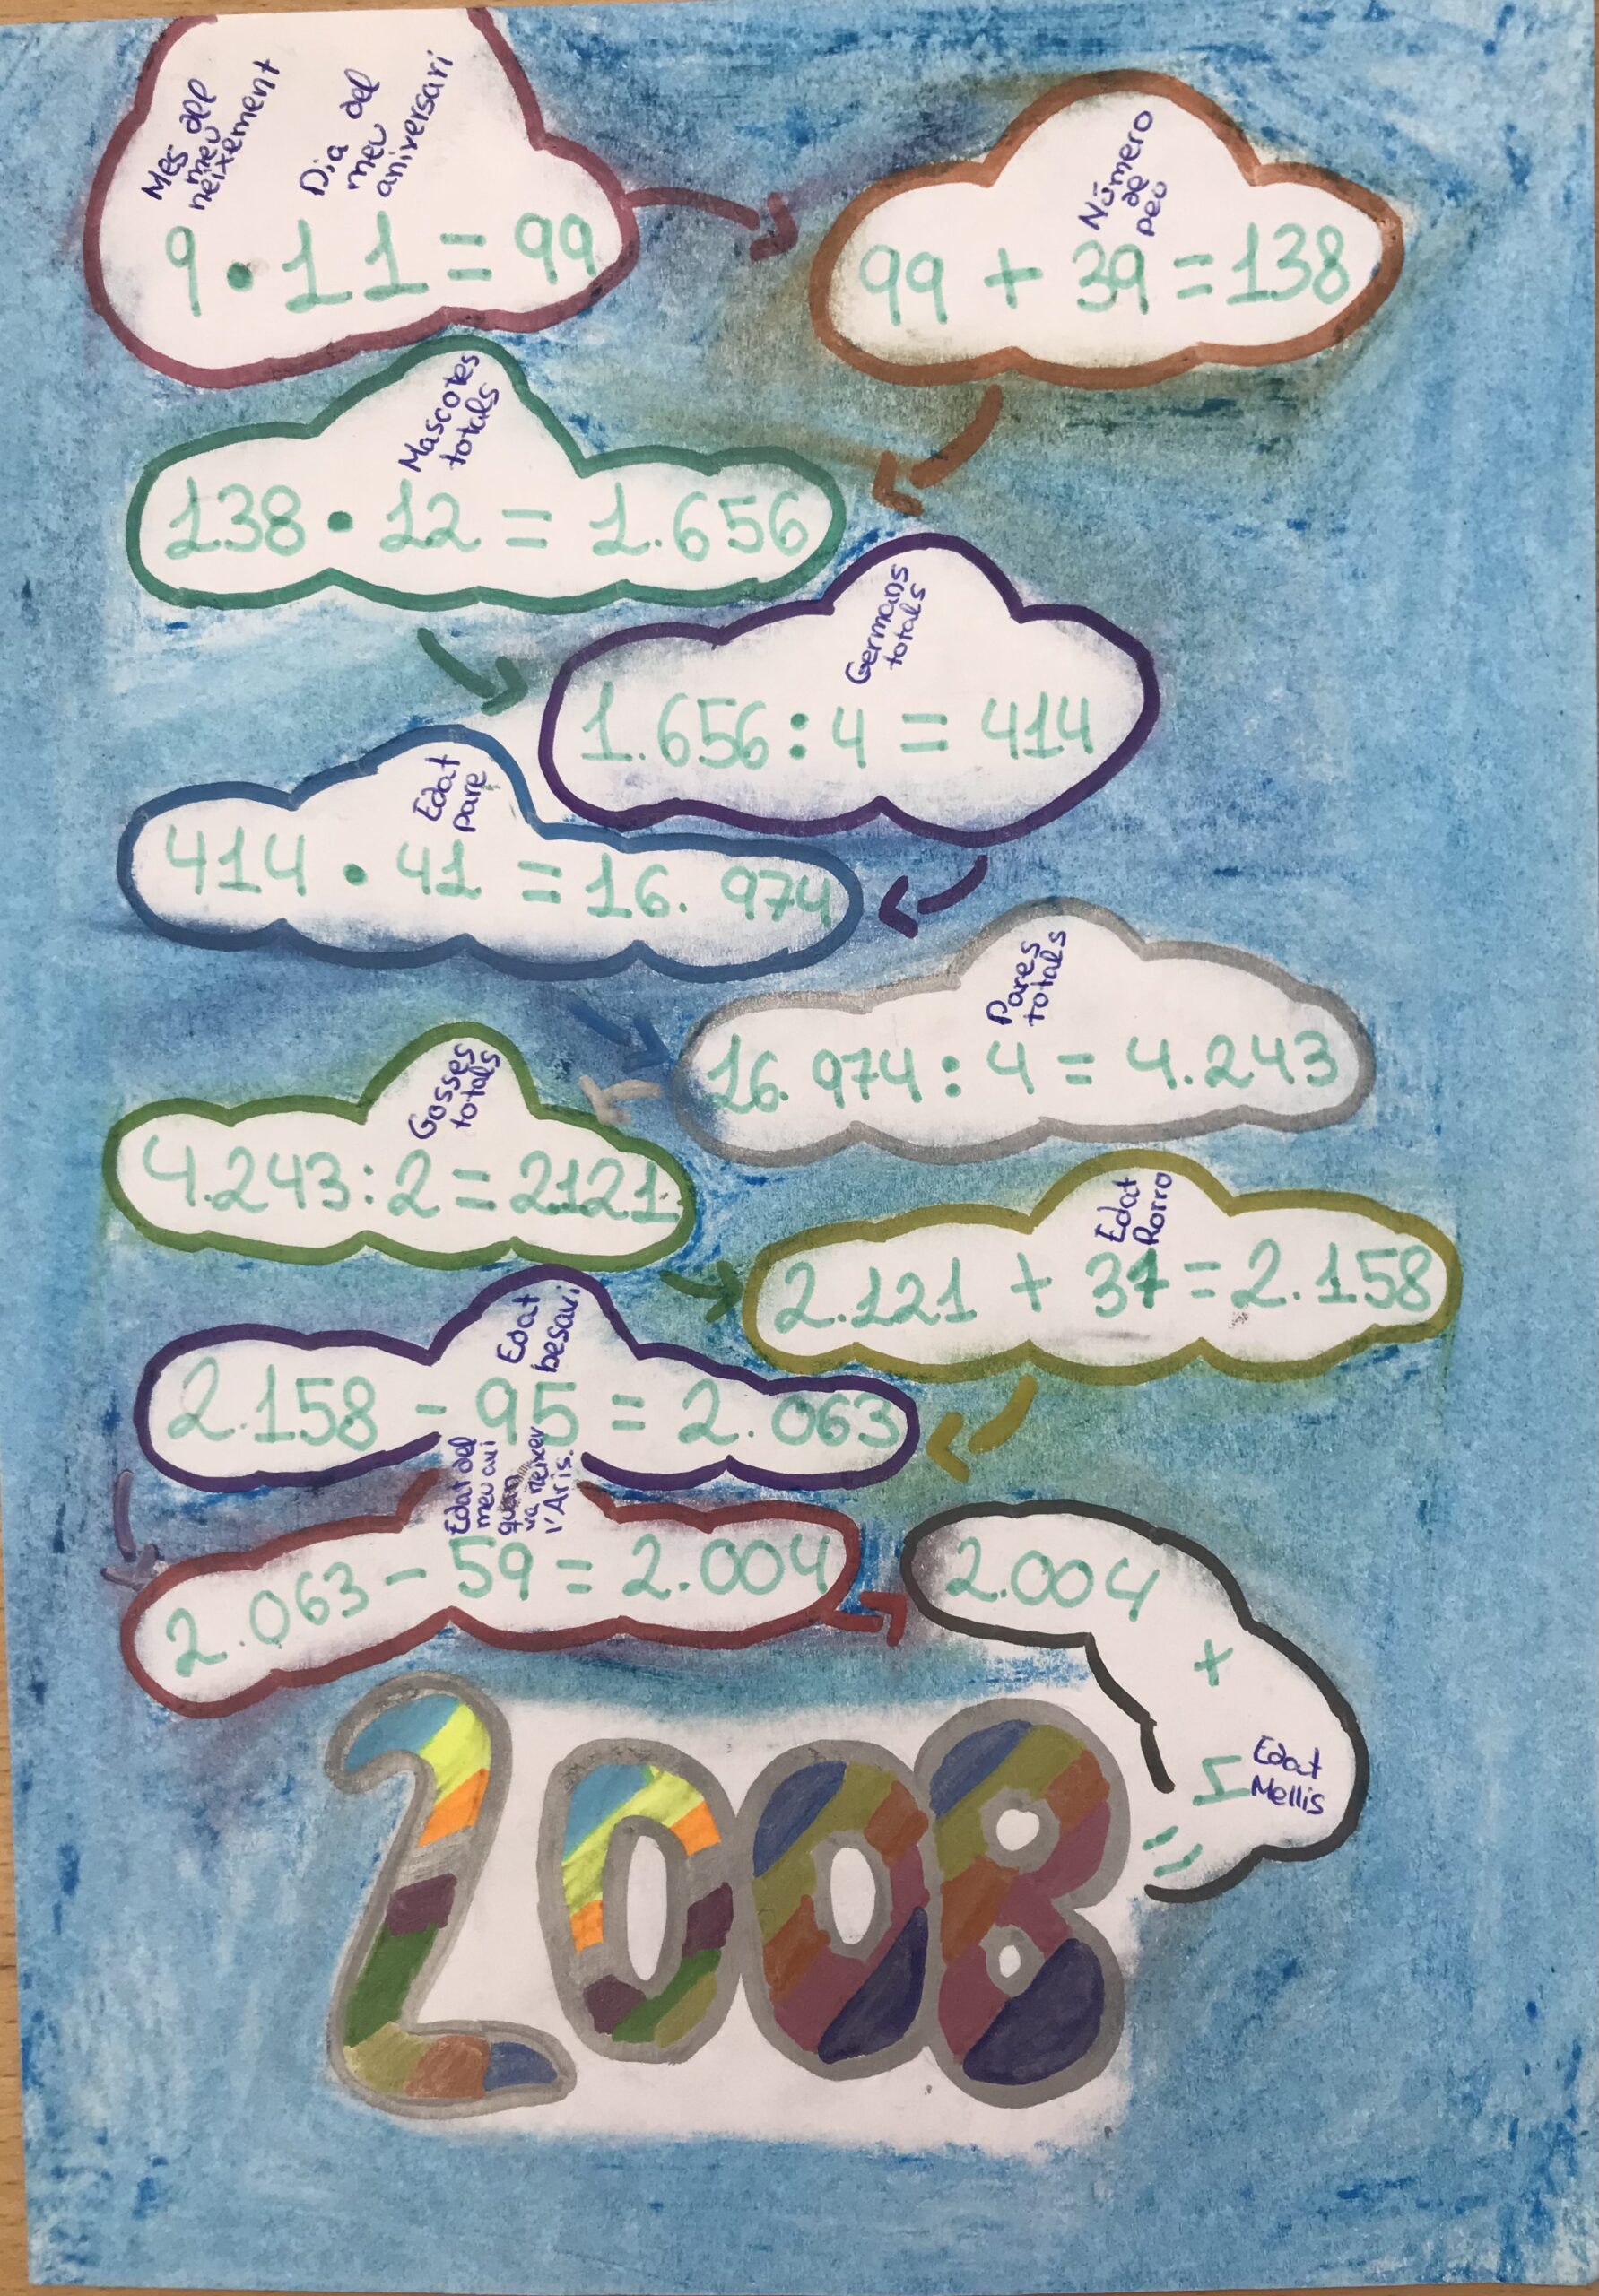 Mes del
meu
neixement
Dia del
meu
aniversari
9 • 11 = 99
Número
de
peu
99 + 39 = 138
Mascotes
totals
138 • 12 = 1.656
Germans
totals
1.656 : 4 = 414
Edat
pare
414 • 41 = 16. 974
Pares
totals
16. 974 : 4 = 4.243
Gosses
totals
4.243 : 2 = 2121
Edat
Rorro
2.121 + 37 = 2.158
Edat
besavi
2.158 - 95 = 2.063
Edat del
meu avi
quan
va neixer
l'Aris.
2.063 - 59 = 2.004
2.004
+
Edat
Mellis
=
2008